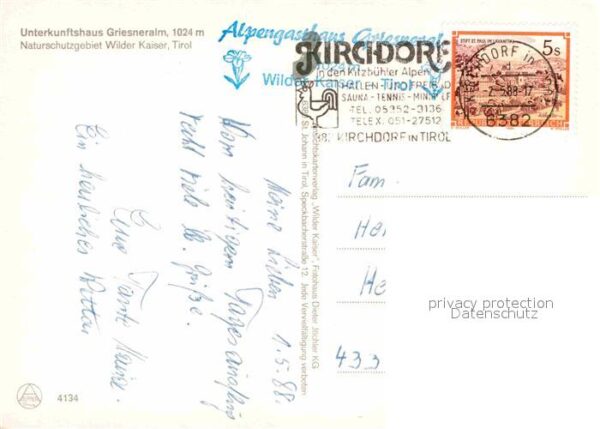 Unterkunftshaus Griesneralm, 1024 m
Naturschutzgebiet Wilder Kaiser, Tirol
Alpengasthaus Griesneralm
Wilder Kaiser Tirol
KIRCHDORF
in den Kitzbühler Alpen
HALLEN- U.
SAUNA - TENNIS - MINI
TEL. 05352-3136
TELEX. 051-27512
6382 KIRCHDORF IN TIROL
STIFT ST. PAUL IM LAVANTTAL
5s
KIRCHDORF in
2.-5.88-17
6382
REPUBLIK ÖSTERREICH
Ansichtskartenverlag „Wilder Kaiser", Fotohaus Dieter Jöchler KG
St. Johann in Tirol, Speckbacherstraße 12. Jede Vervielfältigung verboten
Meine Lieben 1.5.88.
Vom heutigen Tagesausflug
recht viele lb. Grüße.
Eure Tante
Ein herrliches Wetter
Fam.
He
He
433
privacy protection
Datenschutz
4134